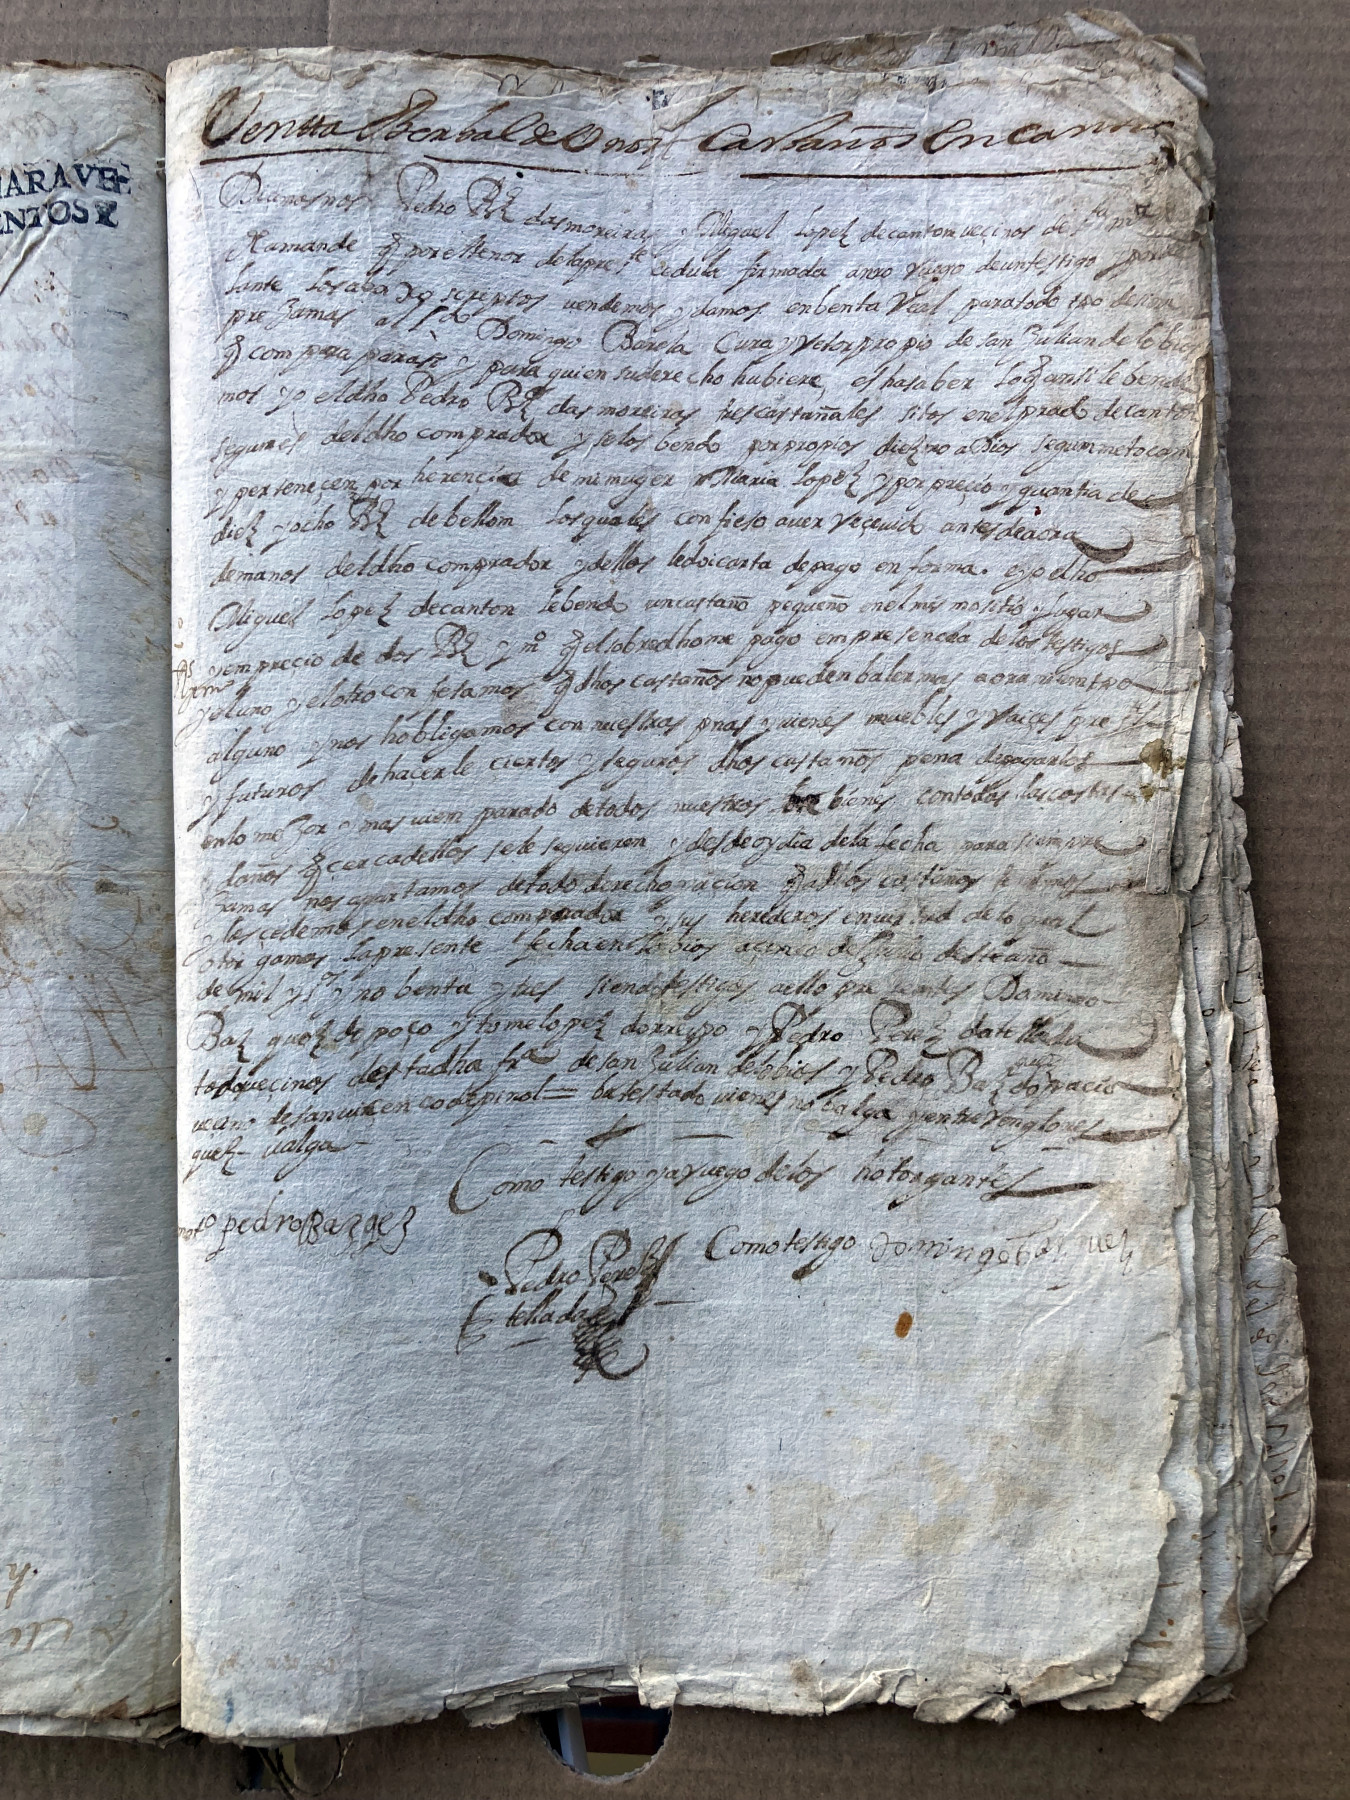 MARAVE
ENTOS
Ventta Berbal de Castaños En Canton
Deçimos nos Pedro Rz das moreiras y Miguel Lopez de canton veçinos de
Ramande q por el tenor de la pres.te cedula firmada a nro ruego de un testigo y por
lante los abaxo screptos vendemos y damos en benta Real para todo tpo de siem
pre Jamas al l.do Domingo Barela Cura y Retor propio de san Julian de lobios
q compra para si y para quien su derecho hubiere, es hasaber lo q ansi le bende
mos yo el dho Pedro Rz das moreiras tres castañales sitos en el prado de canton
segun es del dho comprador y se los bendo por propios diezmo a Dios segun me tocan
y perteneçen por herençia de mi muger Maria Lopez y por preçio y quantia de
diez y ocho Rs de bellom los quales confieso aver reçeuido antes de aora
de manos del dho comprador y dellos le doi carta de pago en forma. e yo el dho
Miguel Lopez de canton le bendo un castaño pequeño en el mismo sitio y lugar
y em precio de dos Rs y m.o q el sobre dho me pago em presencia de los testigos
y el uno y el otro confesamos q dhos castaños no pueden baler mas aora ni en tpo
alguno y nos hobligamos con nuestras pnas y vienes muebles y raiçes pre
y futuros de hacerle ciertos y seguros dhos castaños pena de pagarlos
en lo mejor y mas viem parado de todos nuestros bienes con todas las costas
y daños q cerca dellos se le seguieren y desde oy dia de la fecha para siempre
Jamas nos apartamos de todo derecho y acion q a dhos castaños tenemos
y los cedemos en el dho comprador y sus herederos en virtud de lo qual
otorgamos la presente fecha en lobios a cinco de Julio deste año
de mil y s.os y no benta y tres siendo testigos a ello presentes Domingo
Baz quez de poço y tome lopez do rreipo y Pedro Perez da tellada
todos veçinos desta dha fr.a de san Julian de lobios y Pedro Baz quez do
veçino de san vicenco de pinol = batestado vienes no balga y entre Renglones
quez - valga
Como testigo y a ruego de los hotorgantes
pedro Bazqez
Como testigo Domingo
Pedro Perez
tellada